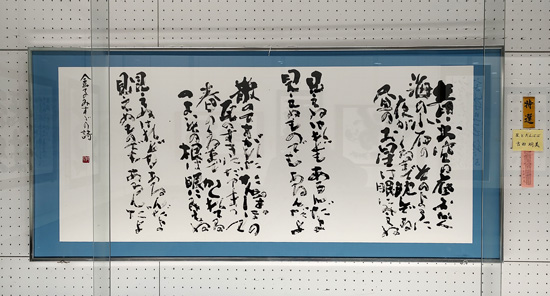 青いお空の底ふかく
海の小石のそのように
夜がくるまで沈んでる
昼のお星は眼にみえぬ
見えぬけれどもあるんだよ
見えぬものでもあるんだよ
散ってすがれたたんぽぽの
瓦のすきにだまって
春のくるまでかくれてる
つよいその根は眼にみえぬ
見えぬけれどもあるんだよ
見えぬものでもあるんだよ
金子みすゞの詩
特選
星とたんぽぽ